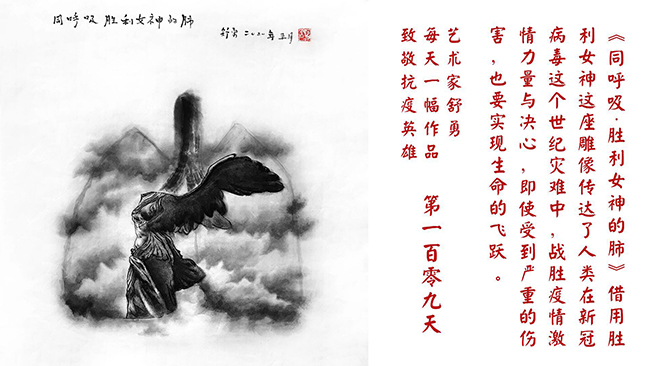 同呼吸 胜利女神的肺
舒勇 二〇二〇年 五月
《同呼吸·胜利女神的肺》借用胜
利女神这座雕像传达了人类在新冠
病毒这个世纪灾难中，战胜疫情激
情力量与决心，即使受到严重的伤
害，也要实现生命的飞跃。
艺术家舒勇
每天一幅作品
致敬抗疫英雄
第一百零九天